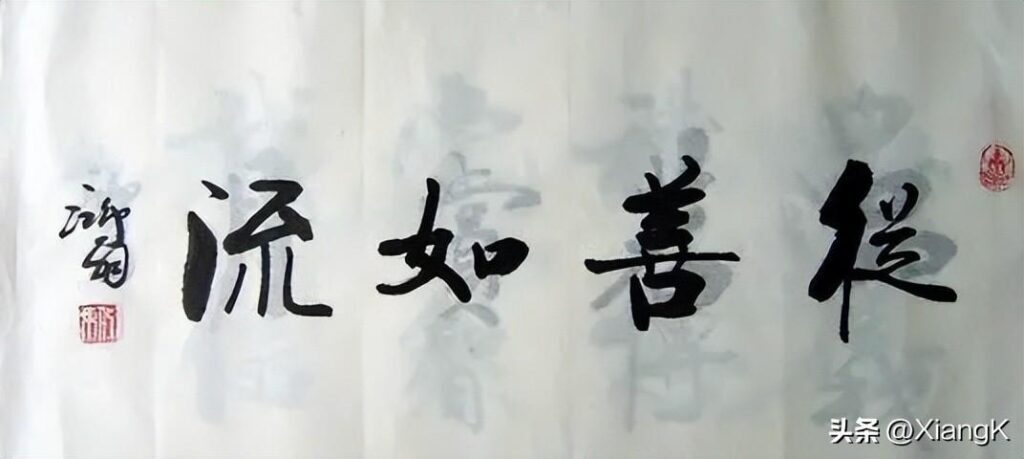 從善如流
头条 @XiangK